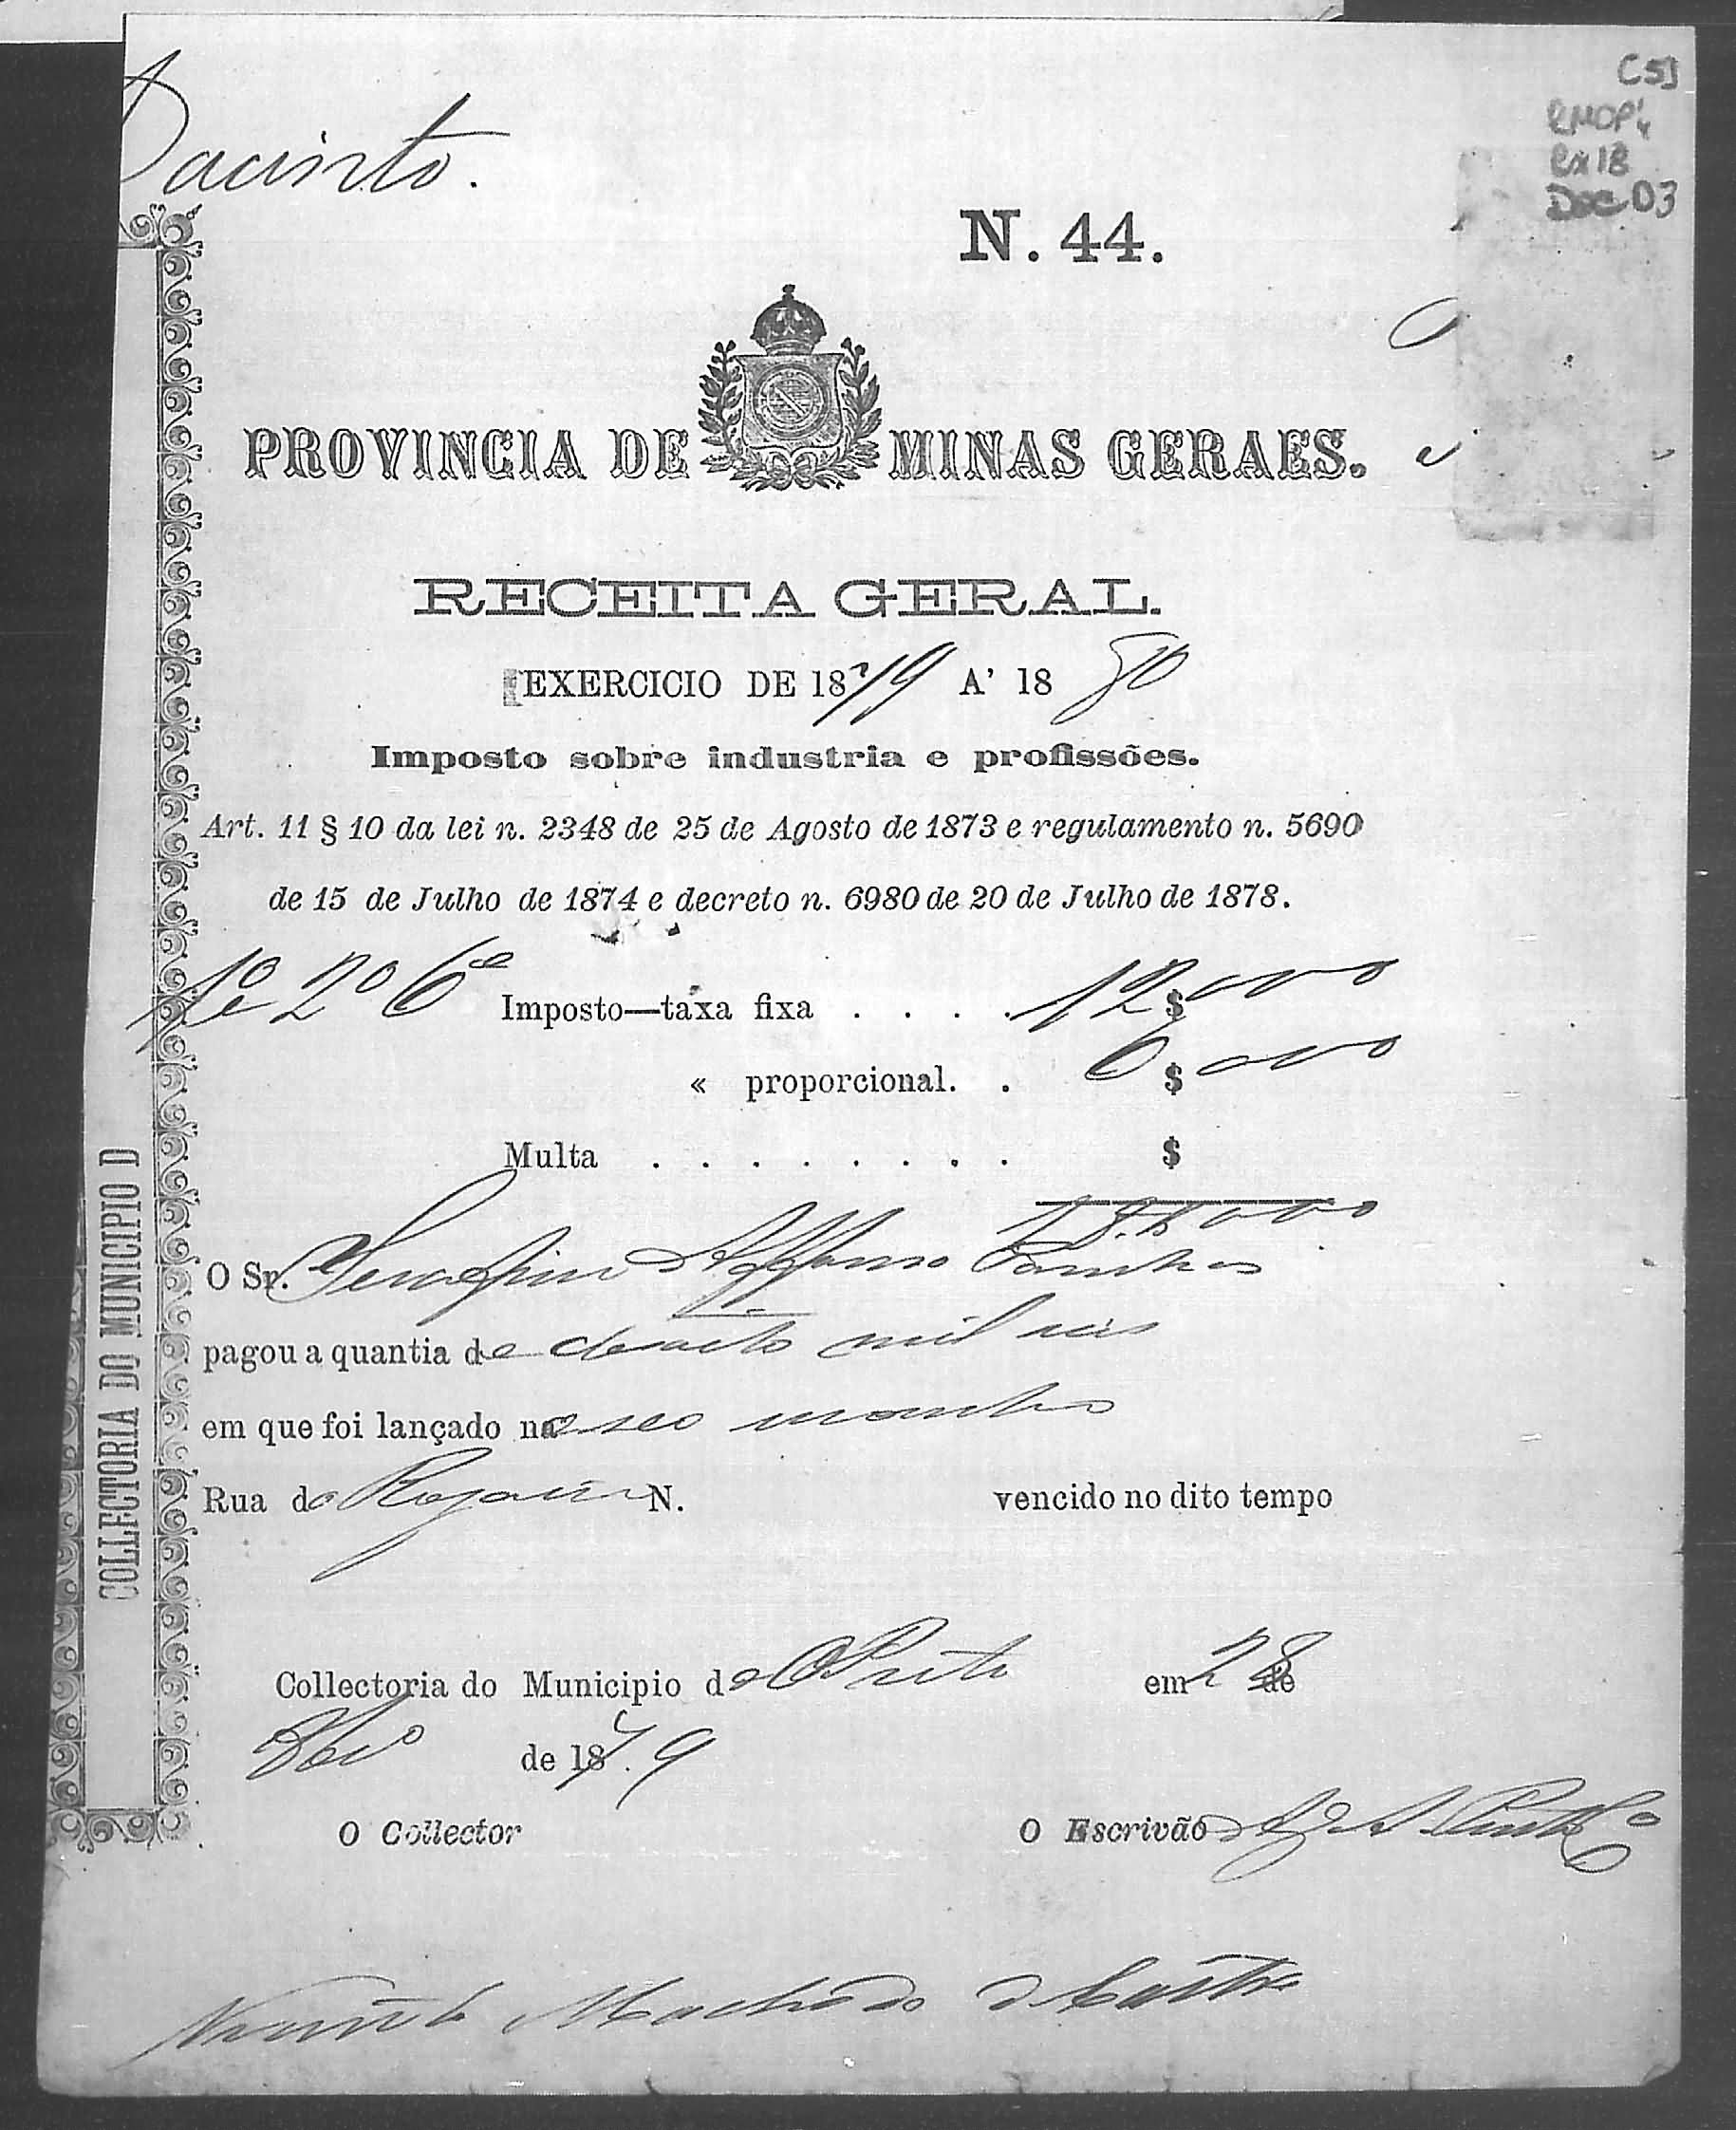 C51
RMOP4
Cx 18
Doc 03
Jacinto.
N. 44.
PROVINCIA DE MINAS GERAES.
RECEITA GERAL.
EXERCICIO DE 1879 A' 1880
Imposto sobre industria e profissões.
Art. 11 § 10 da lei n. 2348 de 25 de Agosto de 1873 e regulamento n. 5690
de 15 de Julho de 1874 e decreto n. 6980 de 20 de Julho de 1878.
1º e 2º 6e Imposto—taxa fixa . . . . 12$000
« proporcional. . 6$000
Multa . . . . . . . . $
18$000
O Sr. Serafim Affonso
pagou a quantia de desoito mil reis
em que foi lançado no seo
Rua do N. vencido no dito tempo
Collectoria do Municipio de OPreto em 28 de
de 1879
O Collector O Escrivão
Machado de Castro
COLLECTORIA DO MUNICIPIO D